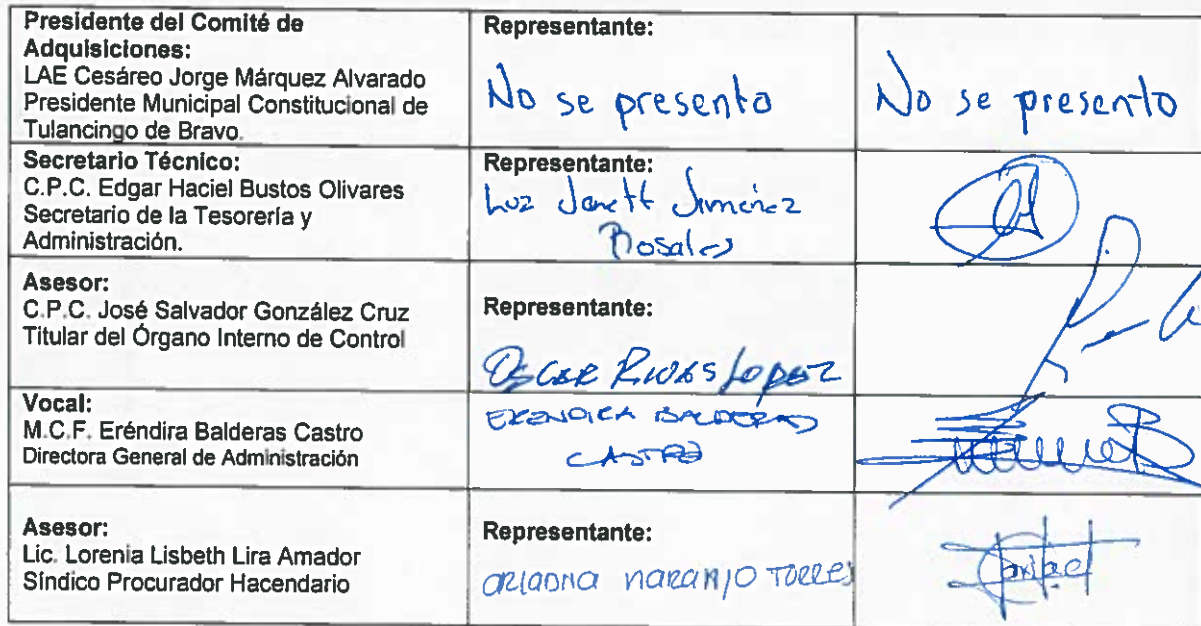 Presidente del Comité de
Adquisiciones:
LAE Cesáreo Jorge Márquez Alvarado
Presidente Municipal Constitucional de
Tulancingo de Bravo.
Representante:
No se presento
No se presento
Secretario Técnico:
C.P.C. Edgar Haciel Bustos Olivares
Secretario de la Tesorería y
Administración.
Representante:
Luz Janett Jiménez
Rosales
Asesor:
C.P.C. José Salvador González Cruz
Titular del Órgano Interno de Control
Representante:
OSCAR RIVAS LOPEZ
Vocal:
M.C.F. Eréndira Balderas Castro
Directora General de Administración
ERENDIRA BALDERAS
CASTRO
Asesor:
Lic. Lorenia Lisbeth Lira Amador
Síndico Procurador Hacendario
Representante:
ARIADNA NARANJO TORRES